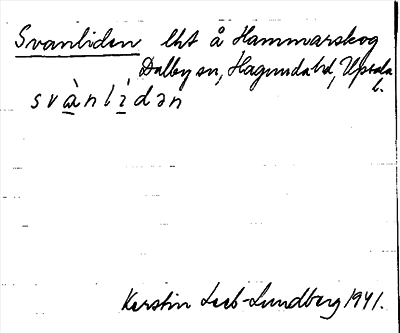 Svanliden lht å Hammarskog
Dalby sn, Hagunda hd, Upsala
l.
svànlìdən
Kerstin Leeb-Lundberg 1941.